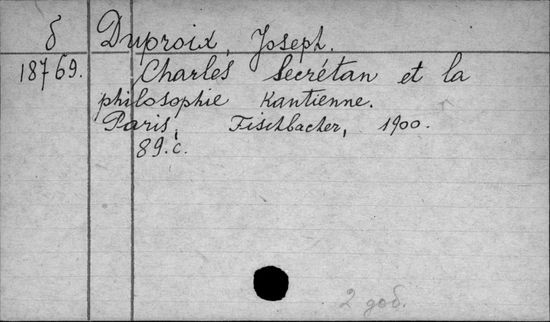 б Duproix, Joseph.
18769. Charles Secrétan et la
philosophie Kantienne.
Paris, Fischbacher, 1900.
89.c.
2 доб.